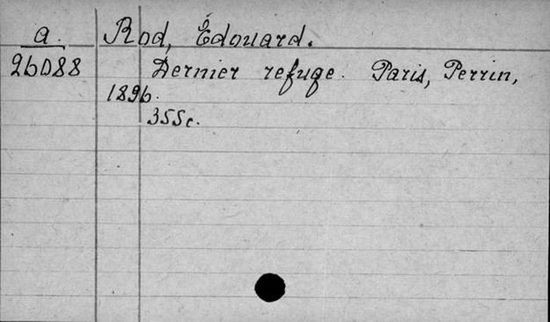 a. Rod, Edouard.
26088 Dernier refuge. Paris, Perrin,
1896.
355c.